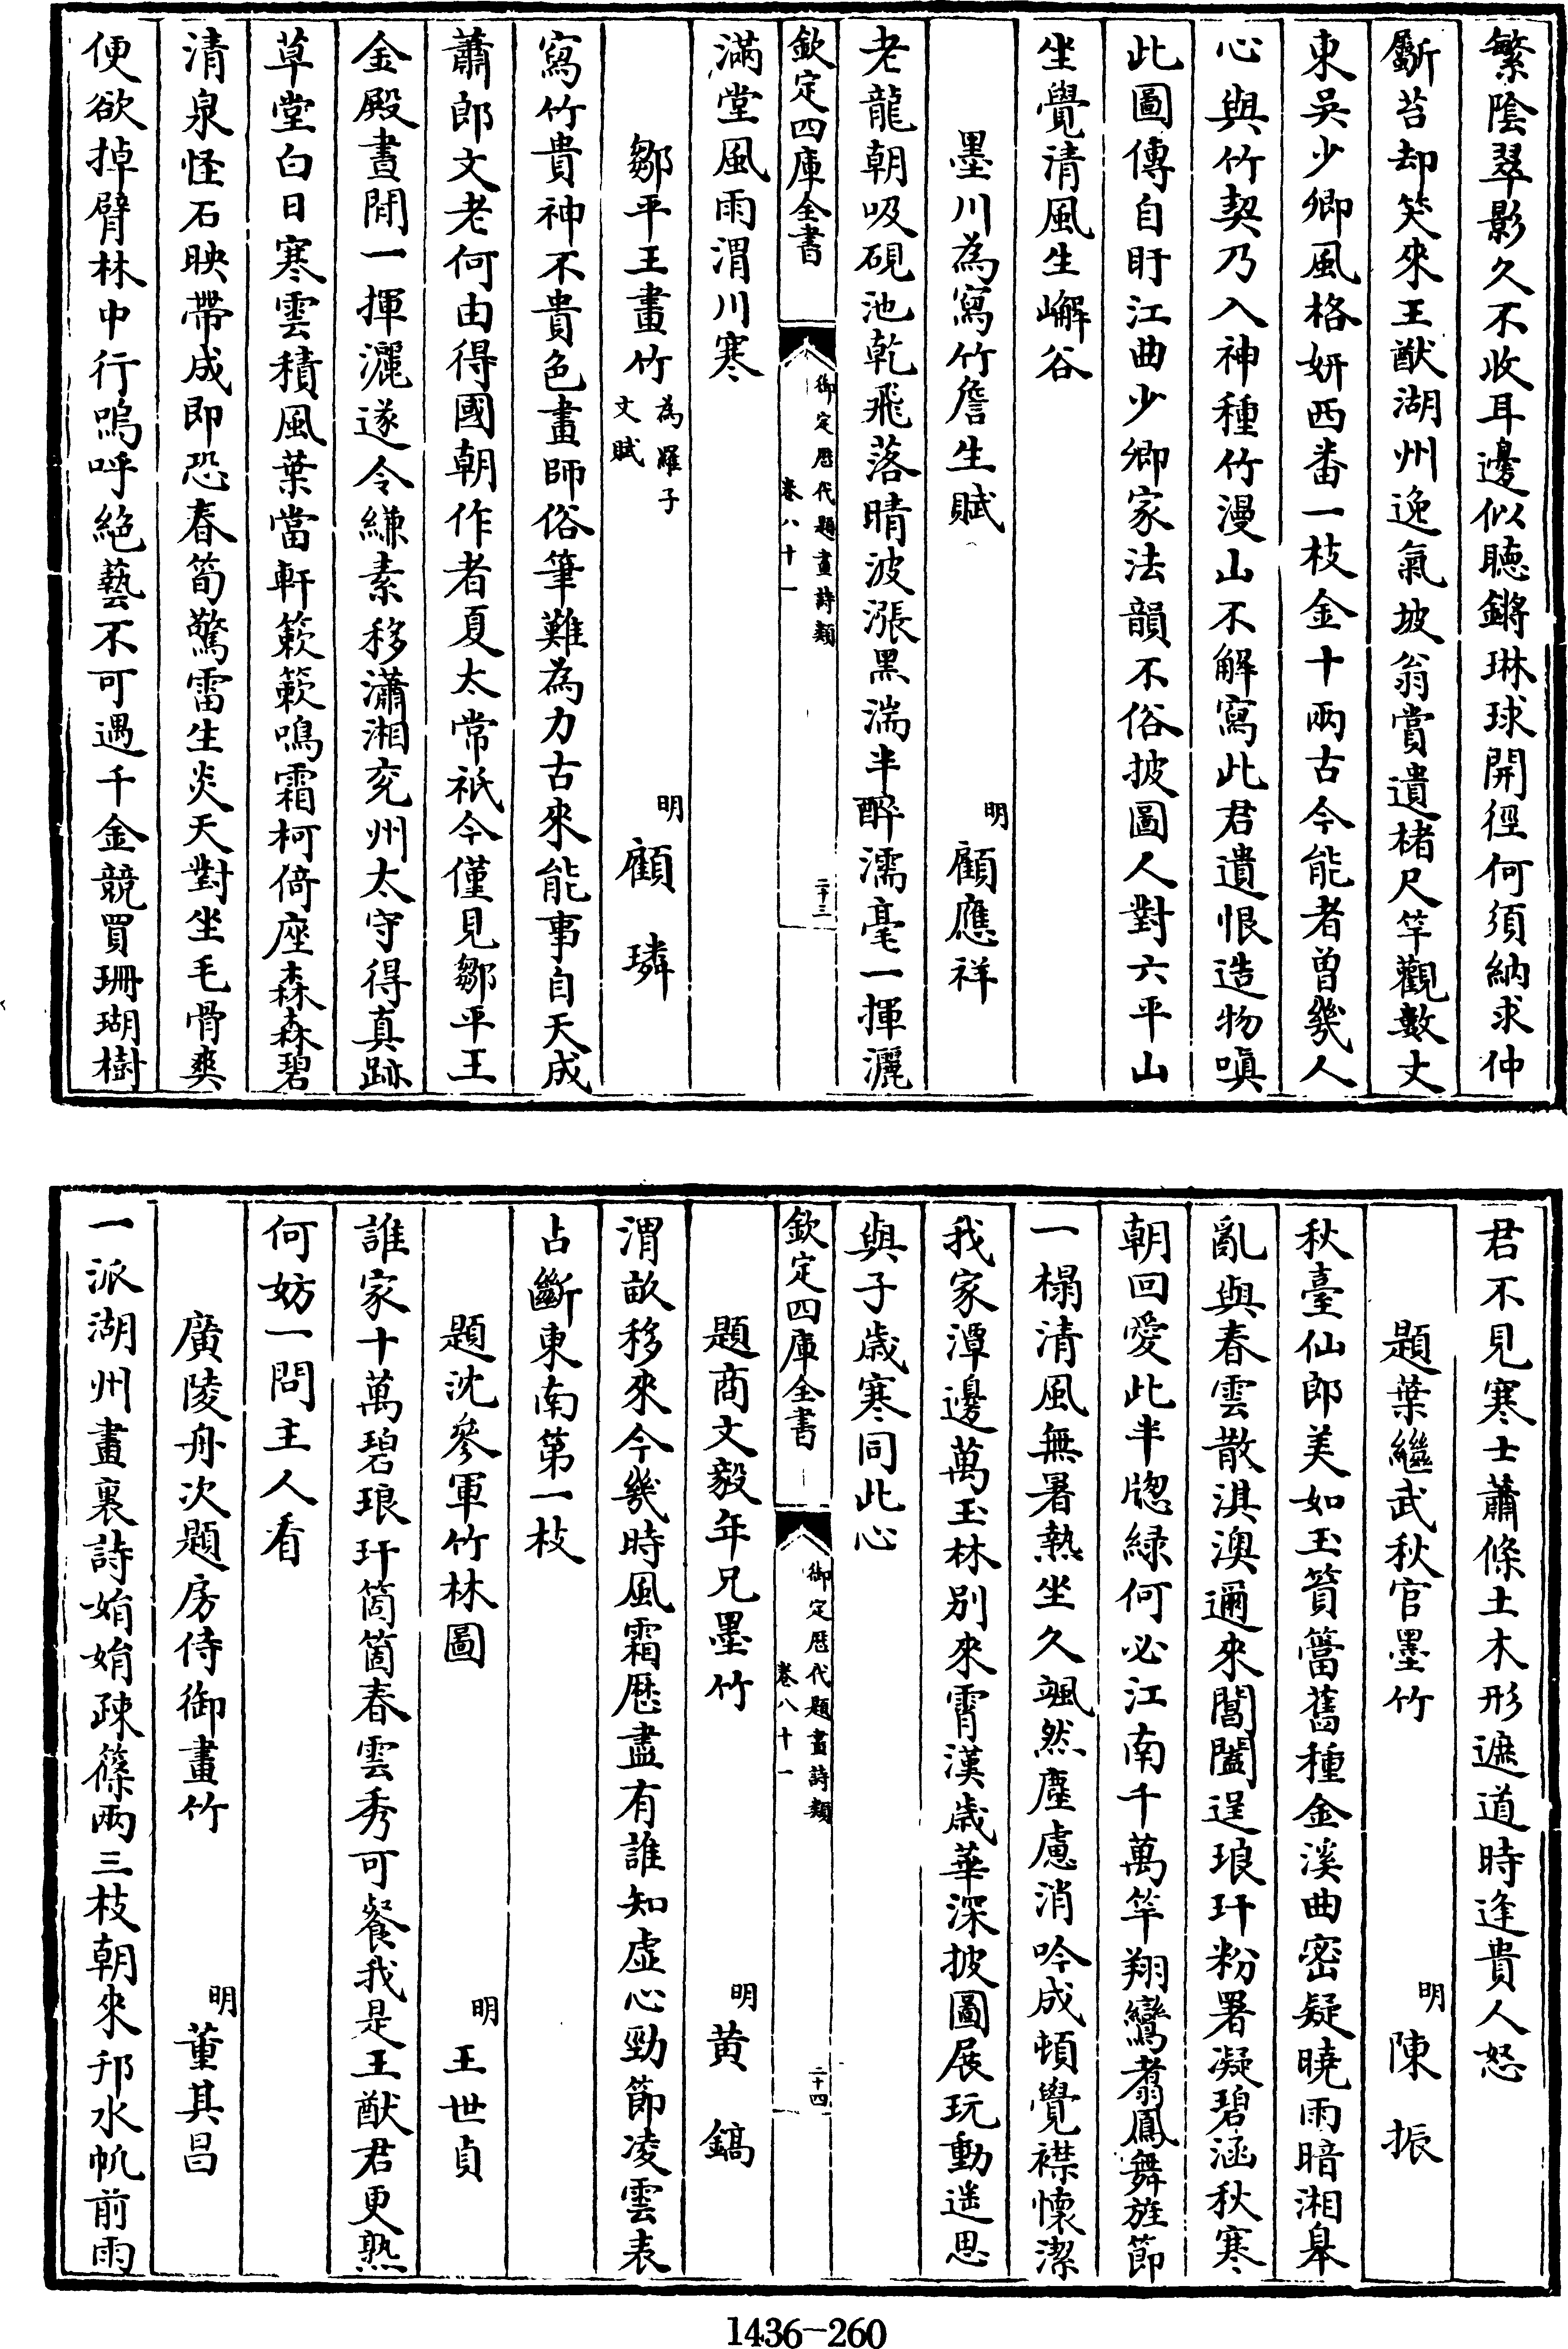 繁陰翠影久不收耳邊似聽鏘琳球開徑何須納求仲
斸苔却笑來王猷湖州逸氣坡翁賞遺楮尺竿觀數丈
東吳少卿風格妍西番一枝金十兩古今能者曾幾人
心與竹契乃入神種竹漫山不解寫此君遺恨造物嗔
此圖傳自盱江曲少卿家法韻不俗披圖人對六平山
坐覺清風生嶰谷
墨川為寫竹詹生賦
明
顧應祥
老龍朝吸硯池乾飛落晴波漲黑湍半醉濡毫一揮灑
欽定四庫全書
御定歷代題畫詩類
卷八十一
二十三
滿堂風雨渭川寒
鄒平王畫竹
為羅子
文賦
明
顧璘
寫竹貴神不貴色畫師俗筆難為力古來能事自天成
蕭郎文老何由得國朝作者夏太常祇今僅見鄒平王
金殿晝閒一揮灑遂令縑素移瀟湘兖州太守得真跡
草堂白日寒雲積風葉當軒簌簌鳴霜柯倚座森森碧
清泉怪石映帶成即恐春筍驚雷生炎天對坐毛骨爽
便欲掉臂林中行嗚呼絶藝不可遇千金競買珊瑚樹
君不見寒士蕭條土木形遮道時逢貴人怒
題葉繼武秋官墨竹
明
陳振
秋臺仙郎美如玉篔簹舊種金溪曲密疑曉雨暗湘皐
亂與春雲散淇澳邇來閶闔逞琅玕粉署凝碧涵秋寒
朝回愛此半牕緑何必江南千萬竿翔鸞翥鳳舞旌節
一榻清風無暑熱坐久颯然塵慮消吟成頓覺襟懷潔
我家潭邊萬玉林别來霄漢歲華深披圖展玩動遙思
與子歲寒同此心
欽定四庫全書
御定歷代題畫詩類
卷八十一
二十四
題商文毅年兄墨竹
明
黄鎬
渭畝移來今幾時風霜歷盡有誰知虚心勁節凌雲表
占斷東南第一枝
題沈參軍竹林圖
明
王世貞
誰家十萬碧琅玕箇箇春雲秀可餐我是王猷君更熟
何妨一問主人看
廣陵舟次題房侍御畫竹
明
董其昌
一派湖州畫裏詩娟娟疎篠兩三枝朝來邗水帆前雨
1436—260